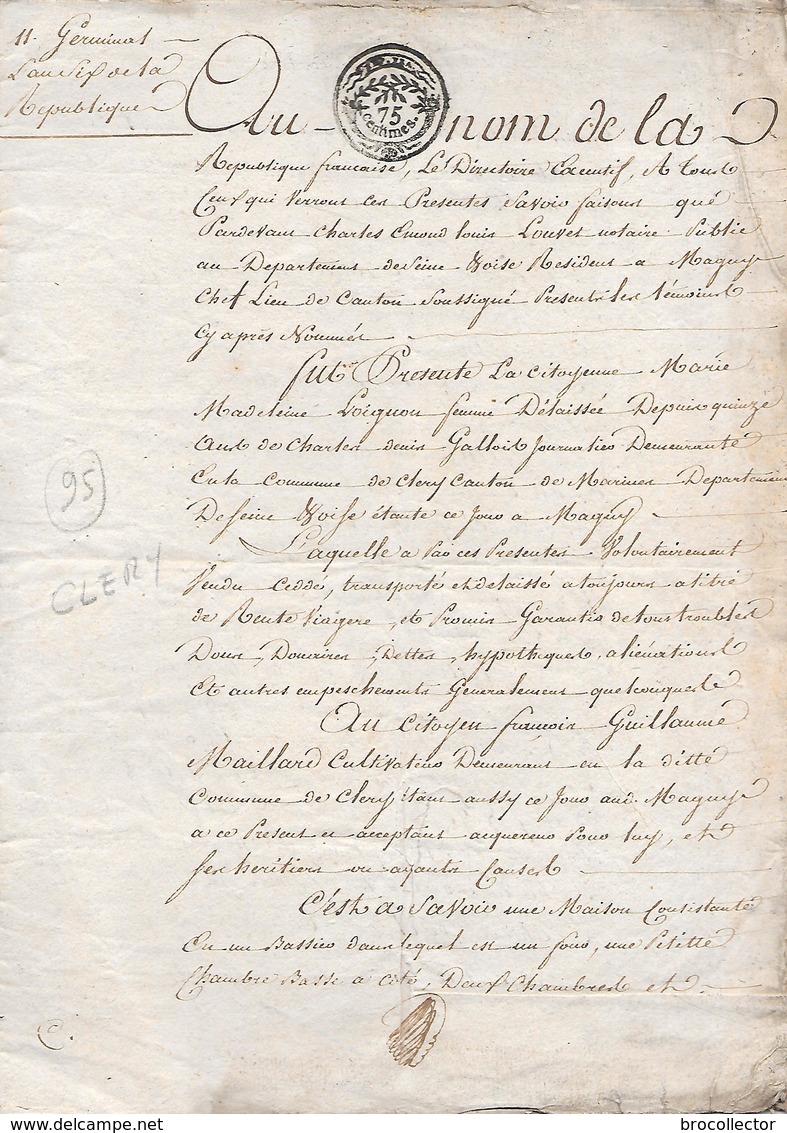 11 Germinal
L'an Six de la
Republique
75
centimes.
Au nom de la
Republique francaise, Le Directoire Executif, A tous
Ceux qui verront ces Presentes Savoir faisons que
Pardevant Charles Emond Louis Louvet notaire Public
au Departement de Seine & oise Resident a Magny
Chef Lieu de Canton Soussigné Presents les témoins
Cy après Nommés
fut Presente La Citoyenne Marie
Madeleine Loignon femme Délaissée Depuis quinze
ans de Charles denis Gallois Journalier Demeurante
en la Commune de Clery Canton de Marines Departement
De Seine & oise étante ce Jour a Magny
L'aquelle a Par ces Presentes Volontairement
Vendu Ceddé, transporté et delaissé a toujours a titre
de Rente Viagere, et Promis Garantir de tous troubles
Dons, Douaires, Dettes, hypotheques, aliénations
Et autres empeschements Generalement quelconques
Au Citoyen françois Guillaume
Maillard Cultivateur Demeurant en la ditte
Commune de Clery étant aussy ce Jour aud. Magny
a ce Present et acceptant acquereur Pour luy, et
Ses heritiers ou ayants Causes
C'est a Savoir une Maison Consistante
En un Bassier dans lequel est un four, une Petitte
Chambre Basse a Coté, Deux Chambres et
95
CLERY
C.
www.delcampe.net
brocollector